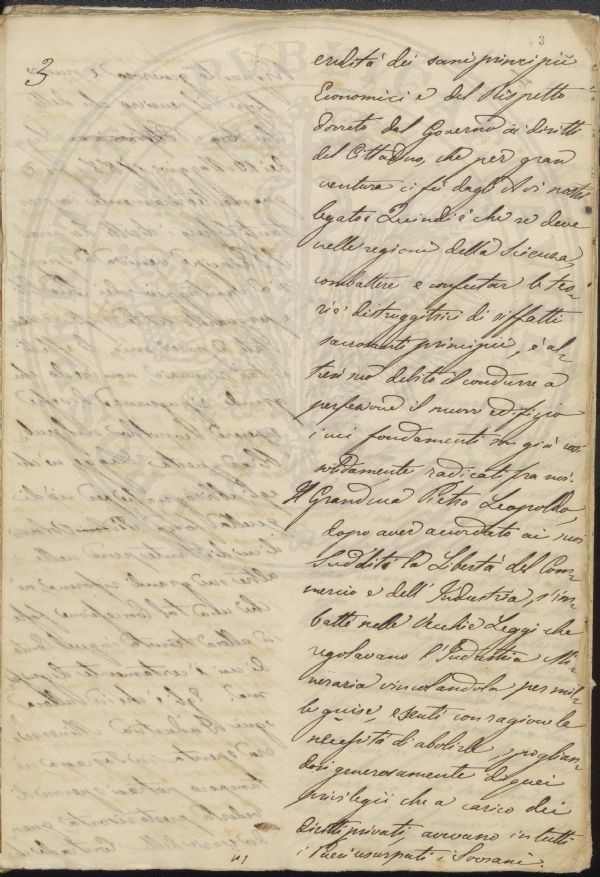 3
3
eredità dei sani principii
Economici e del Rispetto
dovuto dal Governo ai diritti
del Cittadino, che per gran
ventura ci fù dagli Avi nostri
legato. Quindi è che se deve
nelle regioni della Scienza,
combattere e confutar le teo-
rie distruggitrici di siffatti
sacrosanti principii, è al-
tresì suo debito il condurre a
perfezione il nuovo edifizio
i cui fondamenti son già così
solidamente radicati fra noi.
Il Granduca Pietro Leopoldo,
dopo aver accordato ai suoi
Sudditi la Libertà del Com-
mercio e dell'Industria, s'im-
battè nelle Vecchie Leggi che
regolavano l'Industria Mi-
neraria vincolandola per mil-
le guise, e sentì con ragione la
necessità di abolirle, spoglian-
dosi generosamente di quei
privilegii che a carico dei
diritti privati, avevano in tutti
i Paesi usurpati i Sovrani.